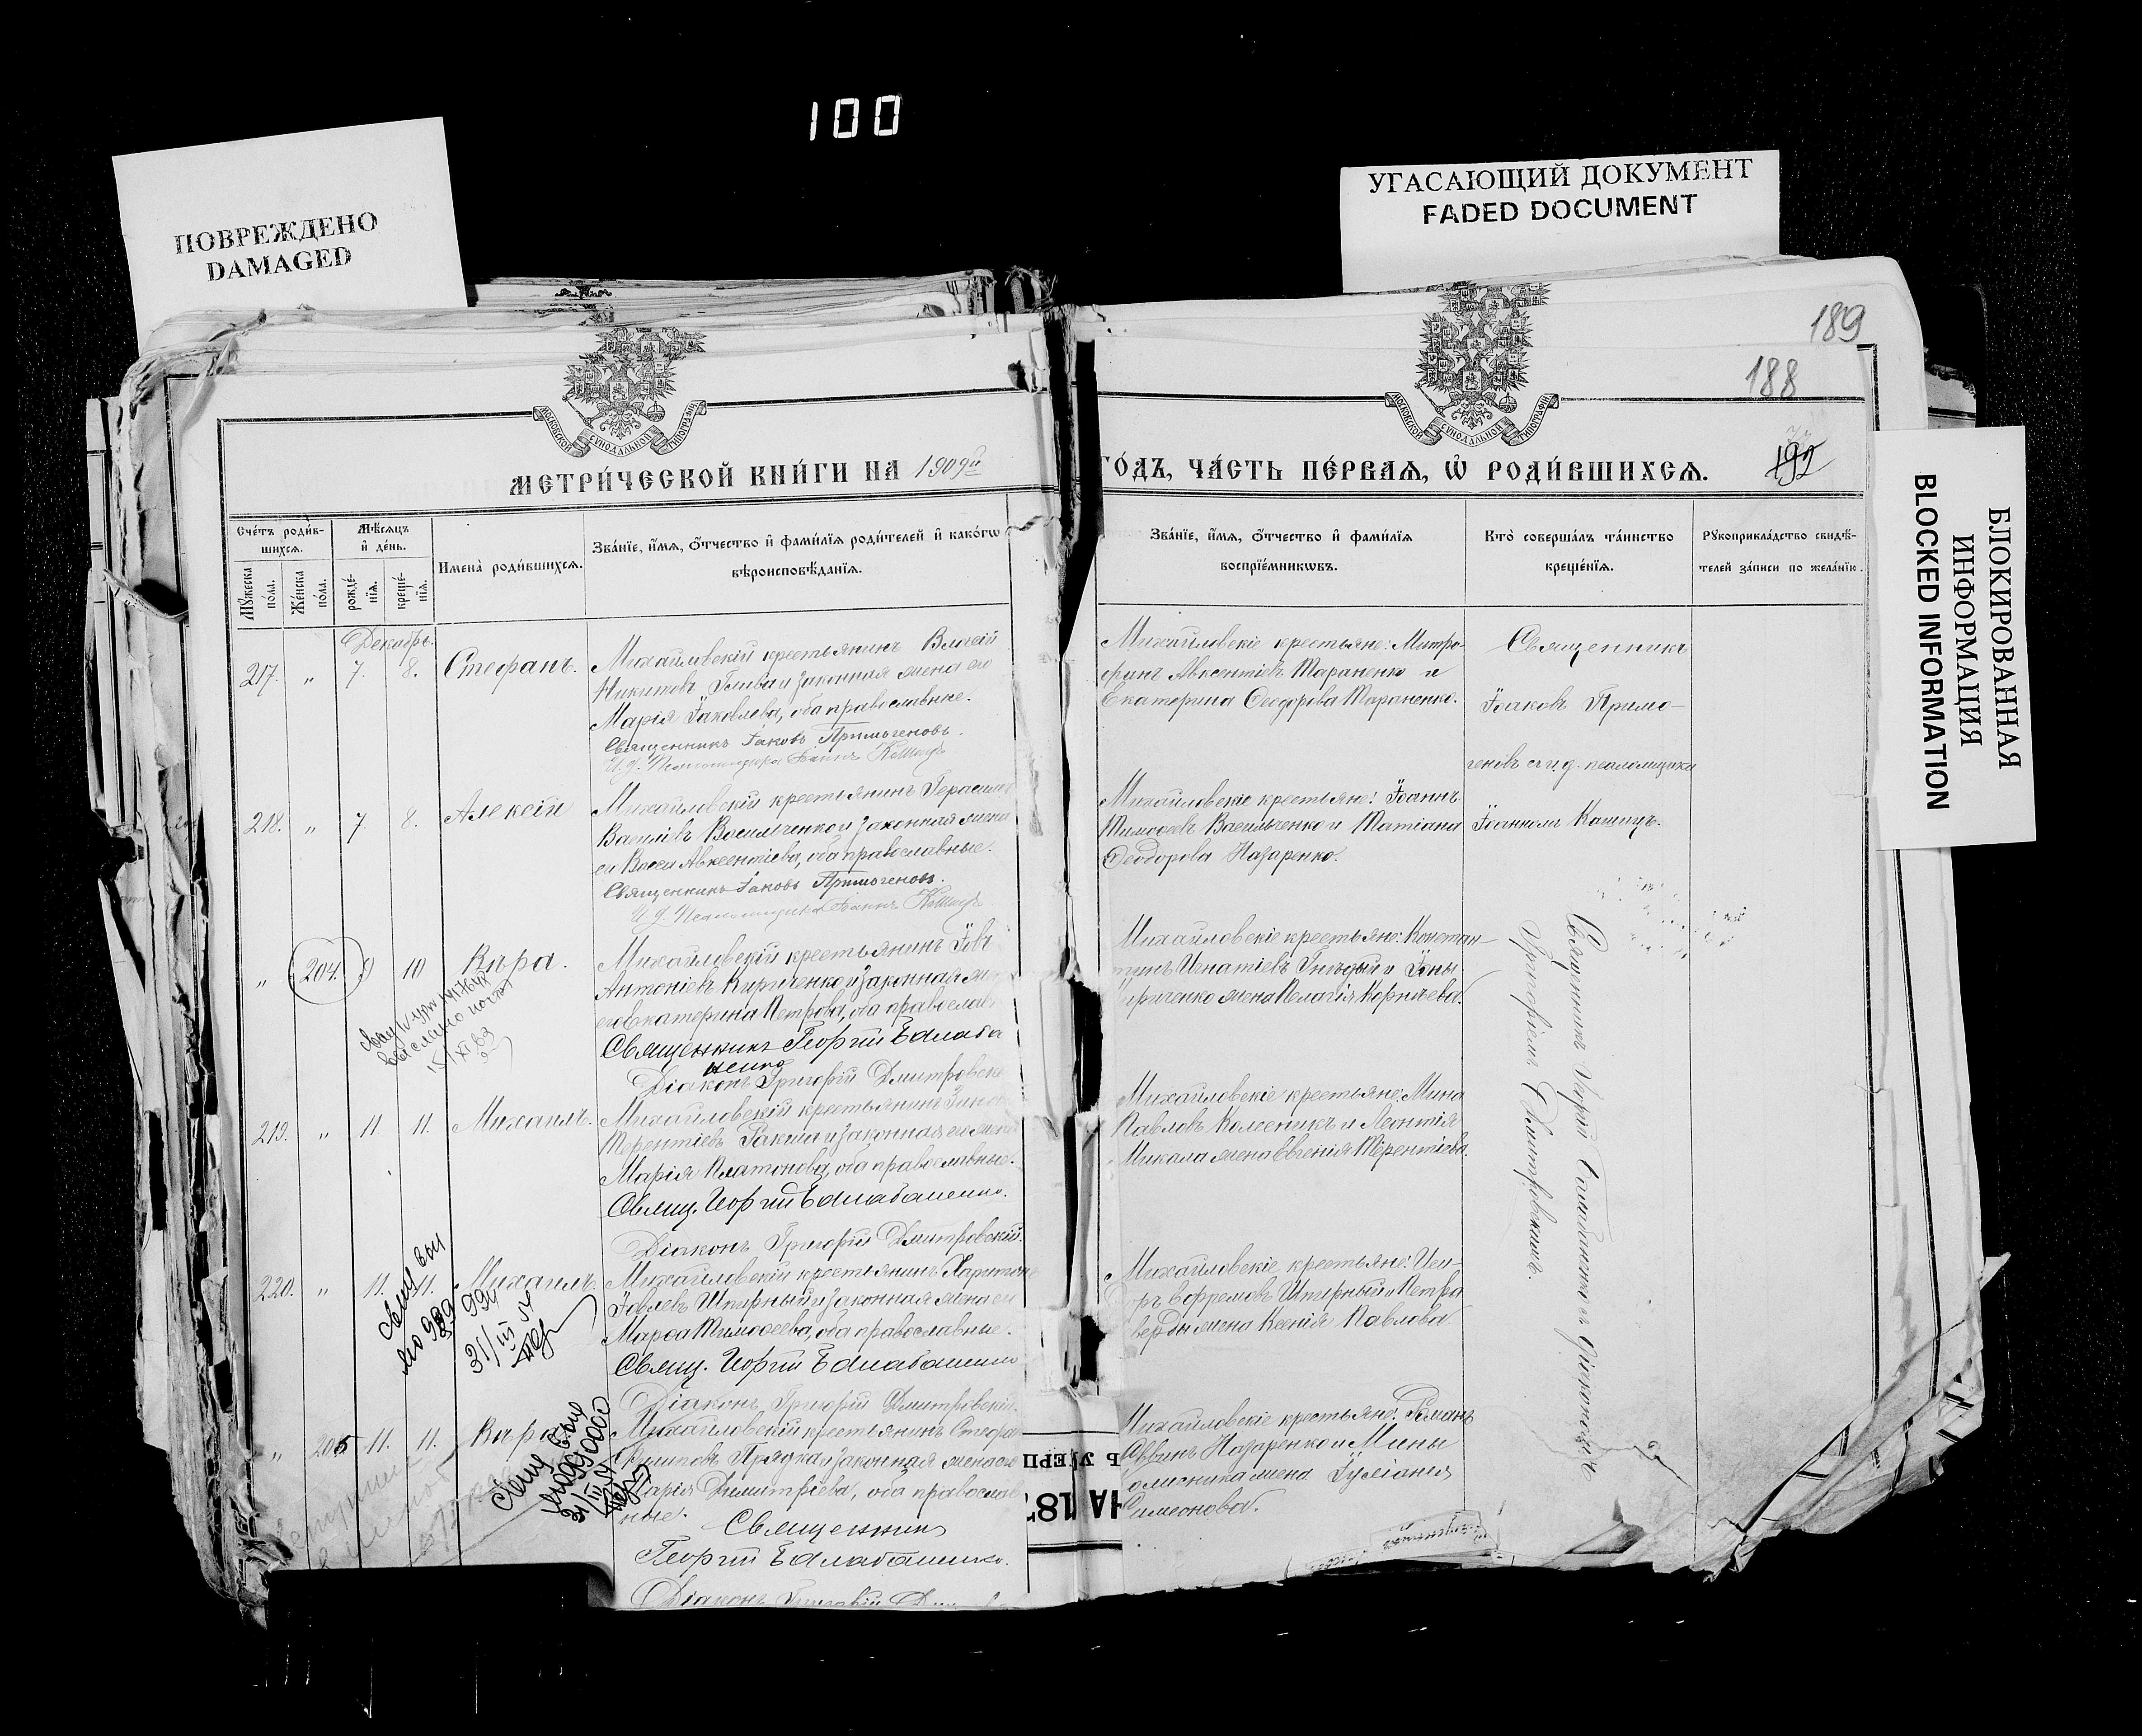 100
ПОВРЕЖДЕНО
DAMAGED
УГАСАЮЩИЙ ДОКУМЕНТ
FADED DOCUMENT
БЛОКИРОВАННАЯ
ИНФОРМАЦИЯ
BLOCKED INFORMATION
189
188
192
МОСКОВСКОЙ СѴНОДАЛЬНОЙ ТИПОГРАФІИ
МОСКОВСКОЙ СѴНОДАЛЬНОЙ ТИПОГРАФІИ
МЕТРИ́ЧЕСКОЙ КНИ́ГИ НА 1909й
ГО́ДЪ, ЧА́СТЬ ПЕ́РВАѦ, Ѡ҆ РОДИ́ВШИХСѦ.
Сче́тъ роди́в-
шихсѧ.
Мꙋ́жеска по́ла.
Же́нска по́ла.
Мѣ́сѧцъ
и҆ де́нь.
рожде́-нїѧ.
креще́-нїѧ.
Имена̀ роди́вшихсѧ.
Зва́нїе, и҆́мѧ, ѻ҆́тчество и҆ фами́лїѧ роди́телей и҆ како́гѡ
вѣроисповѣ́данїѧ.
Зва́нїе, и҆́мѧ, ѻ҆́тчество и҆ фами́лїѧ
воспрїе́мникѡвъ.
Кто̀ соверша́лъ та́инство
креще́нїѧ.
Рꙋкоприкла́дство свидѣ́-
телей за́писи по жела́нїю.
Декабрь.
217. " 7. 8. Стефанъ.
Михайловскій крестьянинъ
Никитовъ и законная жена его
Марія Іаковлева, оба православные.
Священникъ Іаковъ Примогеновъ.
И. д. Псаломщика Іоаннъ Кошицъ
Михайловскіе крестьяне: Митро-
фанъ Авксентіевъ Тараненко и
Екатерина Ѳеодорова Тараненко.
Священникъ
Іоаковъ Примо-
геновъ съ и. д. псаломщика
Іоанномъ Кошицъ.
218. " 7. 8. Алексій
Михайловскій крестьянинъ Герасимъ
Василіевъ Васильченко и законная жена
его Васса Авксентіева, оба православные.
Священникъ Іаковъ Примогеновъ.
И. д. Псаломщика Іоаннъ Кошицъ
Михайловскіе крестьяне: Іоаннъ
Тимоѳеевъ Васильченко и Татіана
Ѳеодорова Назаренко.
" 204. 9 10 Кира.
Михайловскій крестьянинъ Іовъ
Антоніевъ Кириченко и законная же
его Екатерина Петрова, оба православ
Священникъ Георгій Балаба
шенко
Діаконъ Григорій Дмитровскі
Михайловскіе крестьяне: Констан-
тинъ Игнатіевъ Гнѣдый и
Кириченко жена Пелагія Корніева.
выслано почтой
15/XI 63
219. " 11. 11. Михаилъ.
Михайловскій крестьянинъ
Терентіевъ Ракша и законная его жена
Марія Платонова, оба православные.
Свящ. Георгій Балабашенко.
Діаконъ Григорій Дмитровскій.
Михайловскіе крестьяне: Мина
Павловъ Колесникъ и Леонтія
Микала жена Евгенія Терентіева.
220. " 11. 11. Михаилъ.
Михайловскій крестьянинъ Харитонъ
Іовлевъ Шпирный и законная жена его
Марѳа Тимоѳеева, оба православные.
Свящ. Георгій Балабашенко
Діаконъ Григорій Дмитровскій.
Михайловскіе крестьяне:
Ефремовъ Шпирный и Петра
жена Ксенія Павлова.
31/III
" 205 11. 11. Кира
Михайловскій крестьянинъ Стефанъ
Прядка и законная жена его
Марія Димитріева, оба православ
ные.
Священникъ
Георгій Балабашенко.
Діаконъ Григорій
31/III
Михайловскіе крестьяне: Романъ
Назаренко и Мины
Колесника жена Іуліанія
Симеонова.
Священникъ Георгій Балабашенко съ діакономъ
Григоріемъ Дмитровскимъ.
НА 187